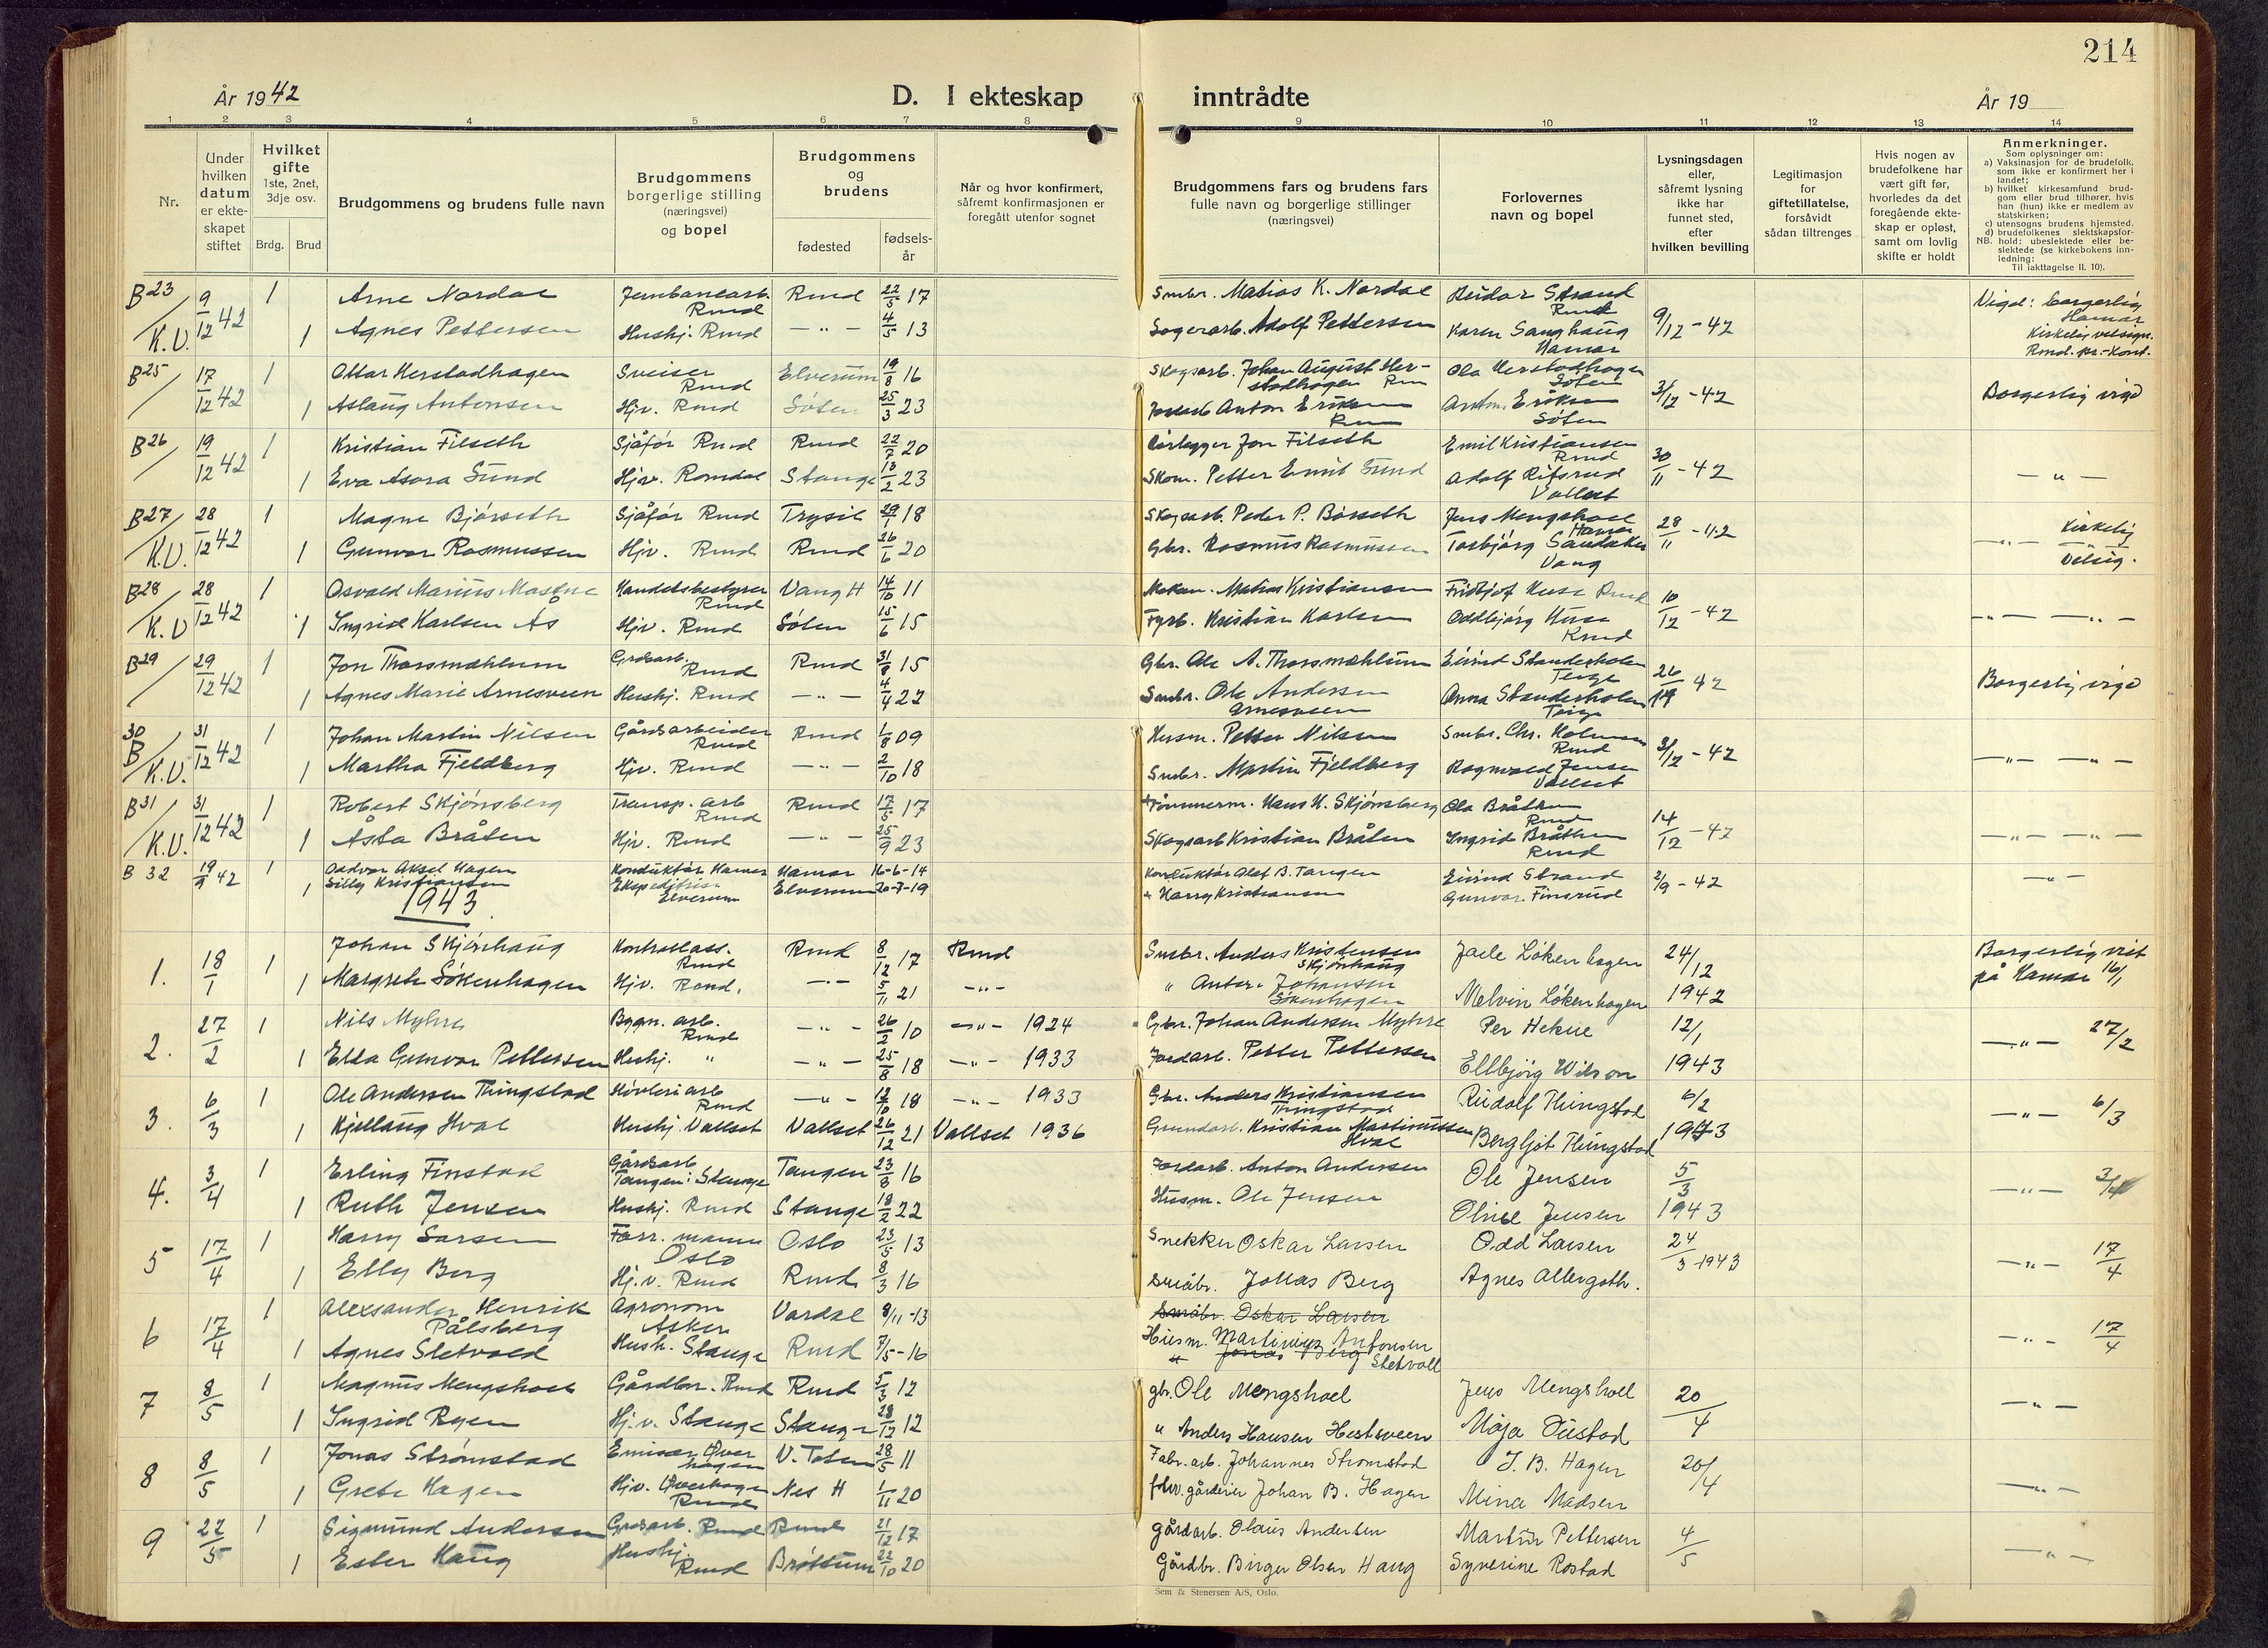 214
År 1942
D. I ekteskap
inntrådte
År 19
1 2 3 4 5 6 7 8 9 10 11 12 13 14
Nr.
Under hvilken datum er ekteskapet stiftet
Hvilket gifte 1ste, 2net, 3dje osv.
Brdg. Brud
Brudgommens og brudens fulle navn
Brudgommens borgerlige stilling (næringsvei) og bopel
Brudgommens og brudens
fødested
fødselsår
Når og hvor konfirmert, såfremt konfirmasjonen er foregått utenfor sognet
Brudgommens fars og brudens fars fulle navn og borgerlige stillinger (næringsvei)
Forlovernes navn og bopel
Lysningsdagen eller, såfremt lysning ikke har funnet sted, efter hvilken bevilling
Legitimasjon for giftetillatelse, forsåvidt sådan tiltrenges
Hvis nogen av brudefolkene har vært gift før, hvorledes da det foregående ekteskap er opløst, samt om lovlig skifte er holdt
Anmerkninger.
Som oplysninger om:
a) Vaksinasjon for de brudefolk, som ikke er konfirmert her i landet;
b) hvilket kirkesamfund brudgom eller brud tilhører, hvis han (hun) ikke er medlem av statskirken;
c) utensogns brudens hjemsted.
d) brudefolkenes slektskapsforhold: ubeslektede eller beslektede (se kirkebokens innledning:
NB.
Til iakttagelse II. 10).
B 23 9/12 42 1 Arne Nordal Jernbanearb. Rmd Rmd 22/5 17 Smbr. Matias K. Nordal Reidar Strand Rmd 9/12-42 Vigd: borgerlig Hamar
K.V. 1 Agnes Pettersen Hushj. Rmd - " - 4/5 13 Sagerarb. Adolf Pettersen Karen Sanghaug Hamar Kirkelig velsign. Rmd. pr.-kont.
B 25 17/12 42 1 Ottar Herstadhagen Sveiser Rmd Elverum 19/8 16 Skogsarb. Johan August Herstadhagen Ola Herstadhagen Løten 3/12-42 Borgerlig vigd
1 Aslaug Antonsen Hjv. Rmd Løten 25/3 23 Anton Eriksen Anton Eriksen Løten
B 26 19/12 42 1 Kristian Filseth Sjåfør Rmd Rmd 22/7 20 Rørlegger Jon Filseth Emil Kristiansen Rmd 30/11-42 - " -
1 Eva Asora Sund Hjv. Romdal Stange 13/2 23 Skom. Petter Emil Sund Adolf Rifsrud Vallset
B 27 28/12 42 1 Magne Bjørseth Sjåfør Rmd Trysil 29/1 18 Skogsarb. Peder P. Børseth Jens Mengshoel Hamar 28/11-42 - " - Kirkelig velsig.
K.V. 1 Gunvor Rasmussen Hjv. Rmd Rmd 26/6 20 Gbr. Rasmus Rasmussen Torbjørg Sandaker Vang
B 28 28/12 42 1 Osvald Marius Handelsbestyrer Rmd Vang H 14/10 11 Mekan. Matias Kristiansen Fridtjof Huse Rmd 10/12-42 - " - - " -
K.V 1 Ingrid Karlsen Ås Hjv. Rmd Løten 15/6 15 Fyrb. Kristian Karlsen Oddbjørg Huse Rmd
B 29 29/12 42 1 Jon Thorsmæhlum Grdsarb. Rmd Rmd 31/8 15 Gbr. Ole A. Thorsmæhlum Eivind Standerholen 26/11 42 Borgerlig vigd
1 Agnes Marie Arnesveen Hushj. Rmd - " - 4/4 22 Smbr. Ole Andersen Arnesveen Anna Standerholen
B 30 31/12 42 1 Johan Martin Nilsen Gårdsarbeider Rmd Rmd 1/8 09 Husm. Petter Nilsen Smbr. Chr. Holmen Rmd 3/12-42 - " - - " -
K.V. 1 Martha Fjeldberg Hjv. Rmd - " - 2/10 18 Smbr. Martin Fjeldberg Ragnvald Jensen Vallset
B 31 31/12 42 1 Robert Skjønsberg Transp. arb Rmd Rmd 17/5 17 +Tømmerm. Hans H. Skjønsberg Ola Bråthen Rmd 14/12-42 - " - " -
K.V. 1 Åsta Bråten Hjv. Rmd - " - 25/9 23 Skogsarb Kristian Bråten Ingrid Bråthen Rmd
B 32 19/9 42 1 Oddvar Aksel Hagen Konduktør Hamar Hamar 16-6-14 Konduktør Olaf B. Tangen Eivind Strand 2/9-42 - " -
1 Silly Kristiansen Ekspeditrise Elverum Elverum 20-7-19 + Harry Kristiansen Gunvor Finsrud
1943
1. 18/1 1 Johan Skjønhaug Kontrollass. Rmd Rmd 8/12 17 Rmd Smbr. Anders Kristensen Skjønhaug Løkenhagen 24/12 1942 Borgerlig viet på Hamar 16/1
1 Margrete Løkenhagen Hjv. Romd. - " - 5/11 21 - " - " Anton Johansen Løkenhagen Melvin Løkenhagen
2. 27/2 1 Nils Myhre Bygn. arb. Rmd - " - 26/2 10 - " - 1924 Gbr. Johan Andersen Myhre Per Hekne 12/1 1943 - " - 27/2
1 Elsa Gunvor Pettersen Hushj. " - " - 25/8 18 - " - 1933 Jordarb. Petter Pettersen Ellbjørg Wilson
3. 6/3 1 Ole Andersen Thingstad Høvleriarb Rmd - " - 12/10 18 - " - 1933 Gbr. Anders Kristiansen Thingstad Rudolf Thingstad 6/2 1943 - " - 6/3
1 Kjellaug Hval Hushj. Vallset Vallset 26/12 21 Vallset 1936 Grundarb. Kristian Martinussen Hval Bergljot Thingstad
4. 3/4 1 Erling Finstad Gårdsarb Tangen i Stange Tangen 23/8 16 Jordarb. Anton Andersen Ole Jensen 5/3 1943 - " - 3/4
1 Ruth Jensen Hushj. Rmd Stange 18/2 22 Husm. Ole Jensen Jensen
5 17/4 1 Harry Larsen Forr. mann Oslo Oslo 23/5 13 Snekker Oskar Larsen Odd Larsen 24/3-1943 - " - 17/4
1 Elly Berg Hj.v. Rmd Rmd 8/3 16 Småbr. Jonas Berg Agnes Allergoth.
6 17/4 1 Alexsander Henrik Pålsberg Agronom Asker Vardal 9/11-13 Småbr. Oskar Larsen - " - 17/4
1 Agnes Sletvold Hush. Stange Rmd 7/5-16 Husm. Martinius Antonsen Sletvoll
" Jonas Berg
7 8/5 1 Magnus Mengshoel Gårdbr. Rmd Rmd 5/3 12 gbr. Ole Mengshoel Jens Mengshoel 20/4 - " -
1 Ingrid Ryen Hj.v. Stange Stange 28/12 12 " Anders Hansen Hestsveen Maja
8 8/5 1 Jonas Strømstad Emisær Øverhagen V. Toten 28/5 11 Fabr. arb. Johannes Strømstad J. B. Hagen 20/4 - " -
1 Grete Hagen Hjv. Øverhagen Rmd Nes H 1/11 20 fhv. gårdeier Johan B. Hagen Mina Madsen
9 22/5 1 Sigmund Andersen Grdsarb. Rmd Rmd 21/12 17 gårdarb. Olaus Andersen Martin Pettersen 4/5 - " -
1 Ester Haug Hushj. Rmd Brøttum 22/10 20 Gårdbr. Birger Olsen Haug Syverine Rostad
Sem & Stenersen A/S, Oslo.